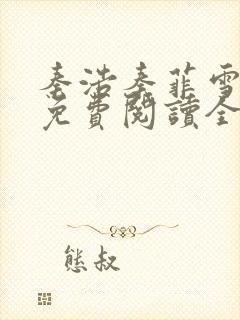 秦浩秦菲雪
免費閱讀全
熊叔